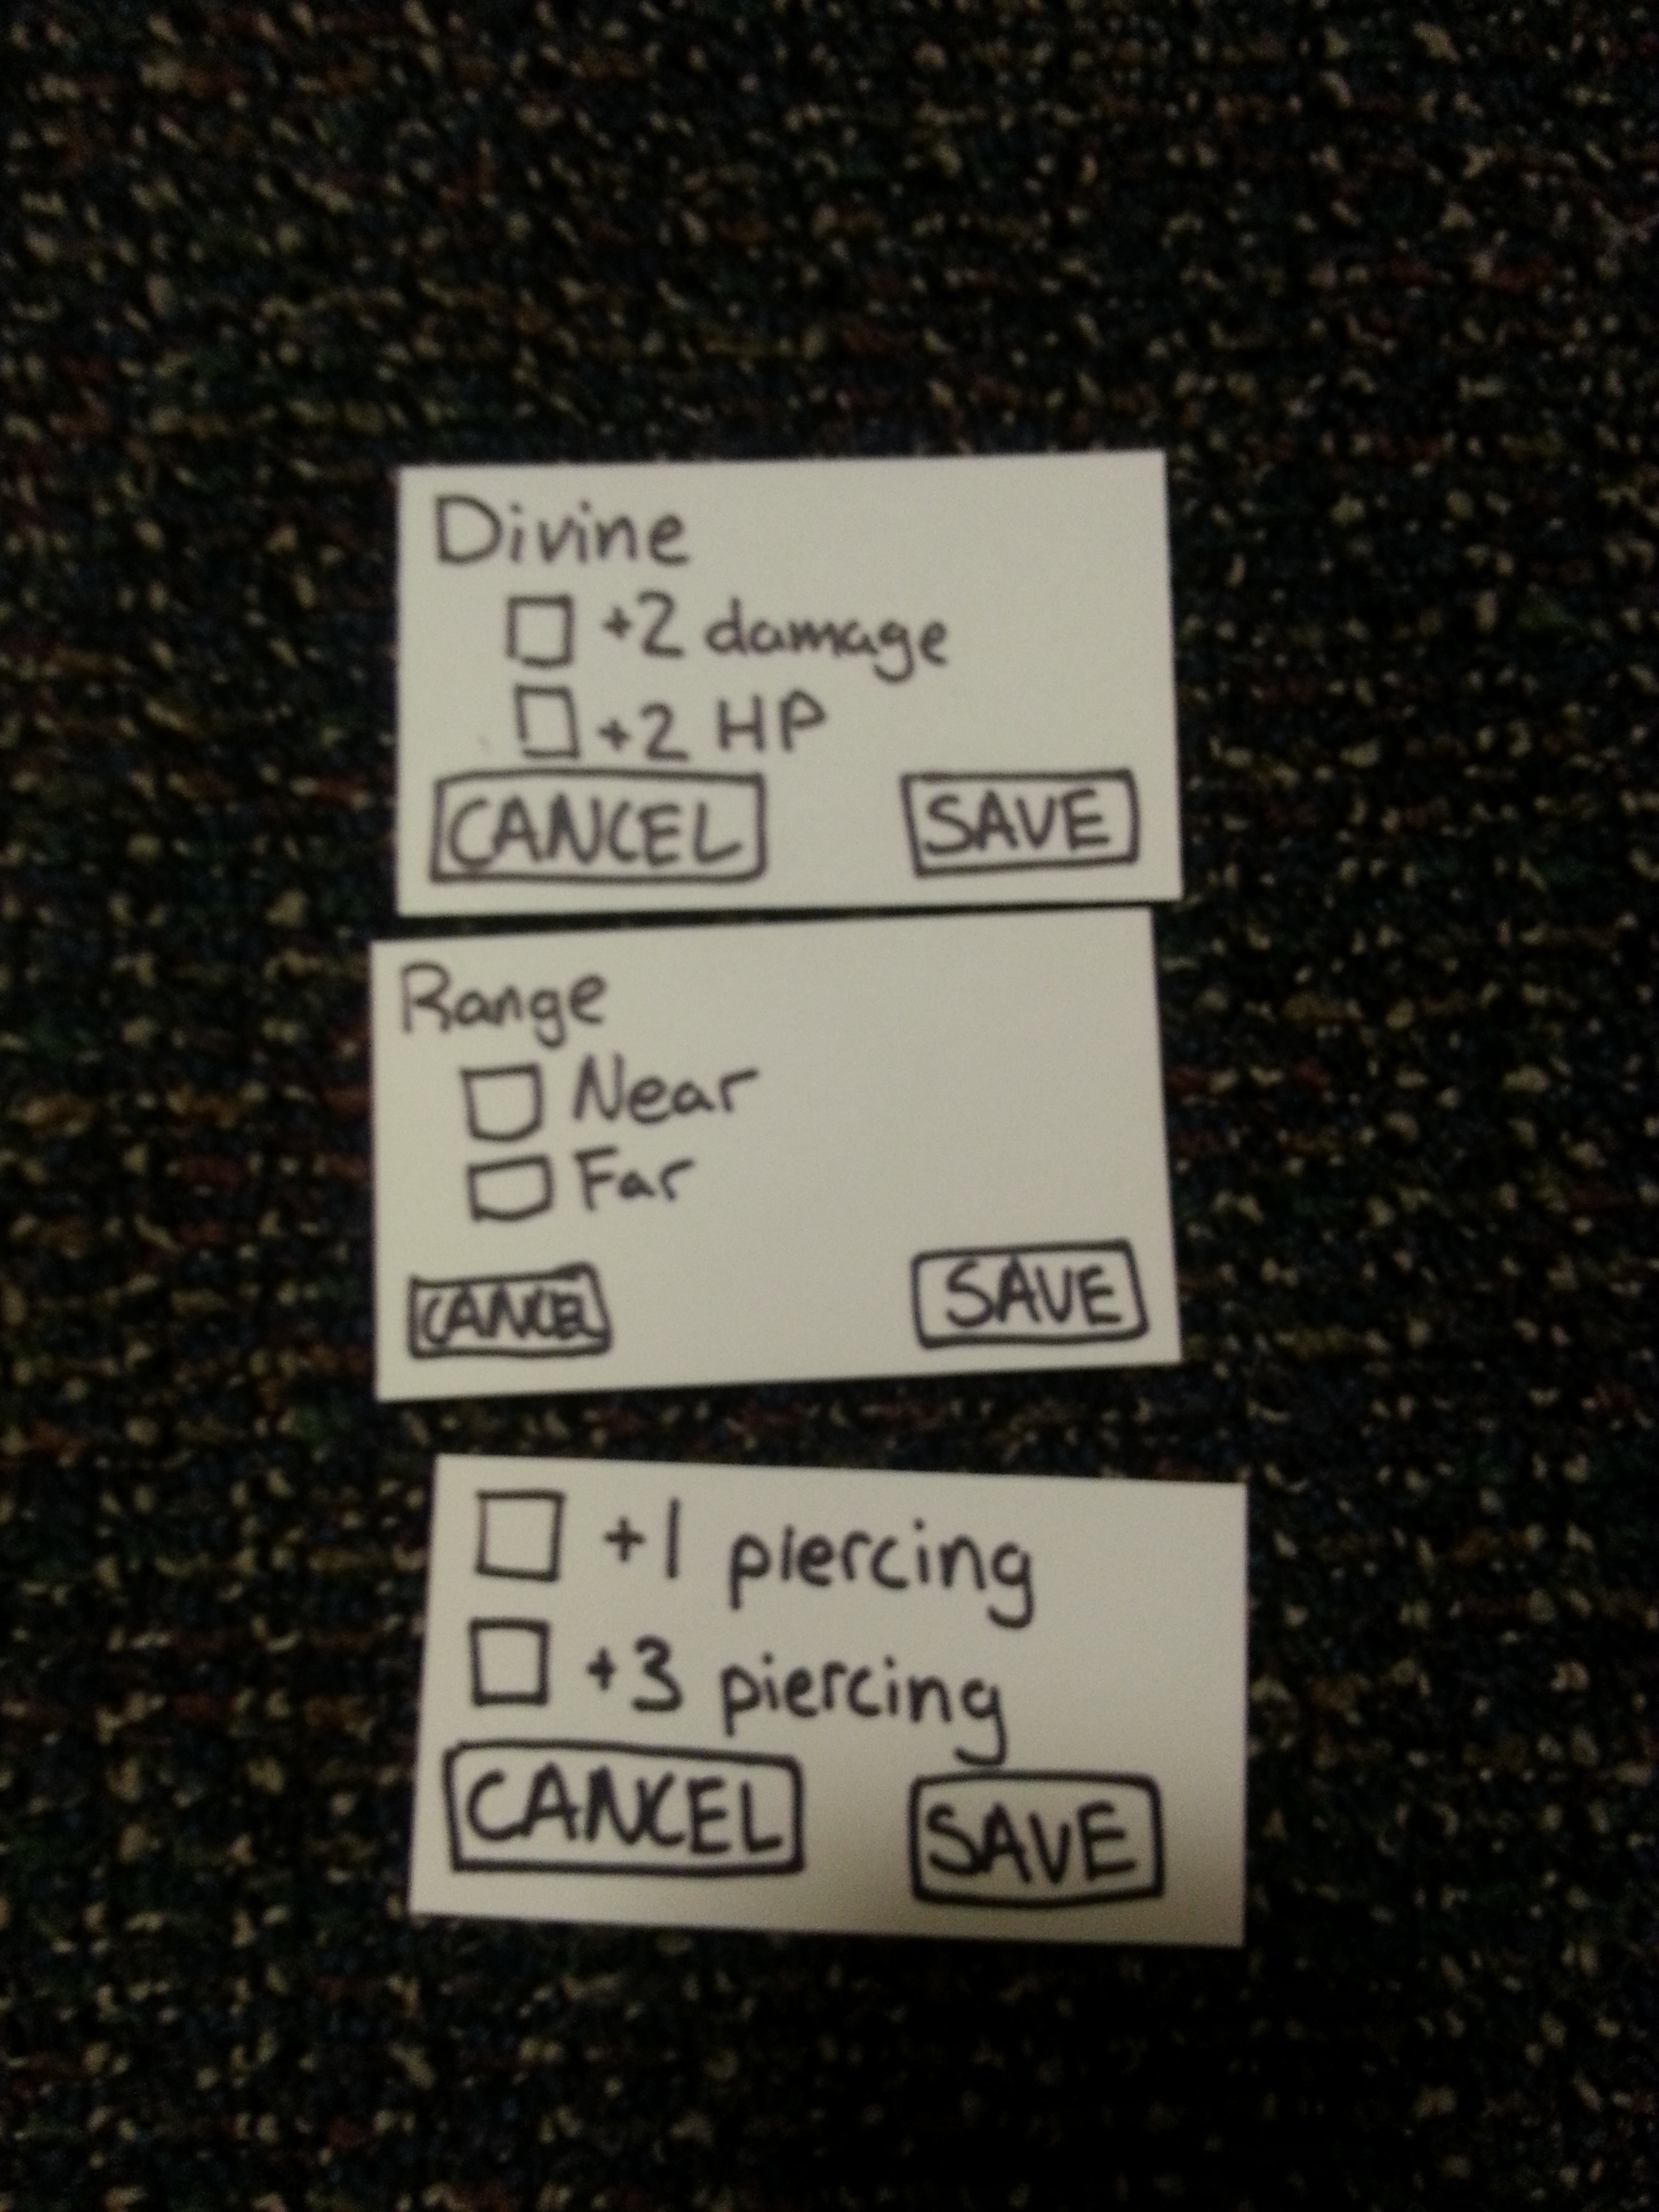 Divine
+2 damage
+2 HP
CANCEL SAVE
Range
Near
Far
CANCEL SAVE
+1 piercing
+3 piercing
CANCEL SAVE